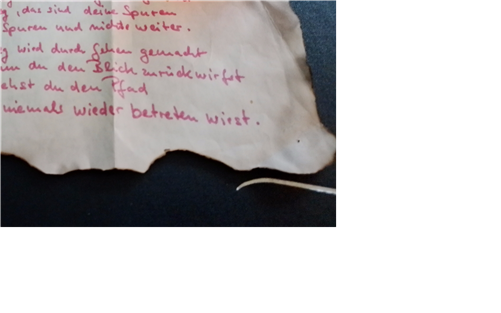 g, das sind deine Spuren
Spuren und nichts weiter.
g wird durch Gehen gemacht
nn du den Blick zurückwirfst
ehst du den Pfad
niemals wieder betreten wirst.